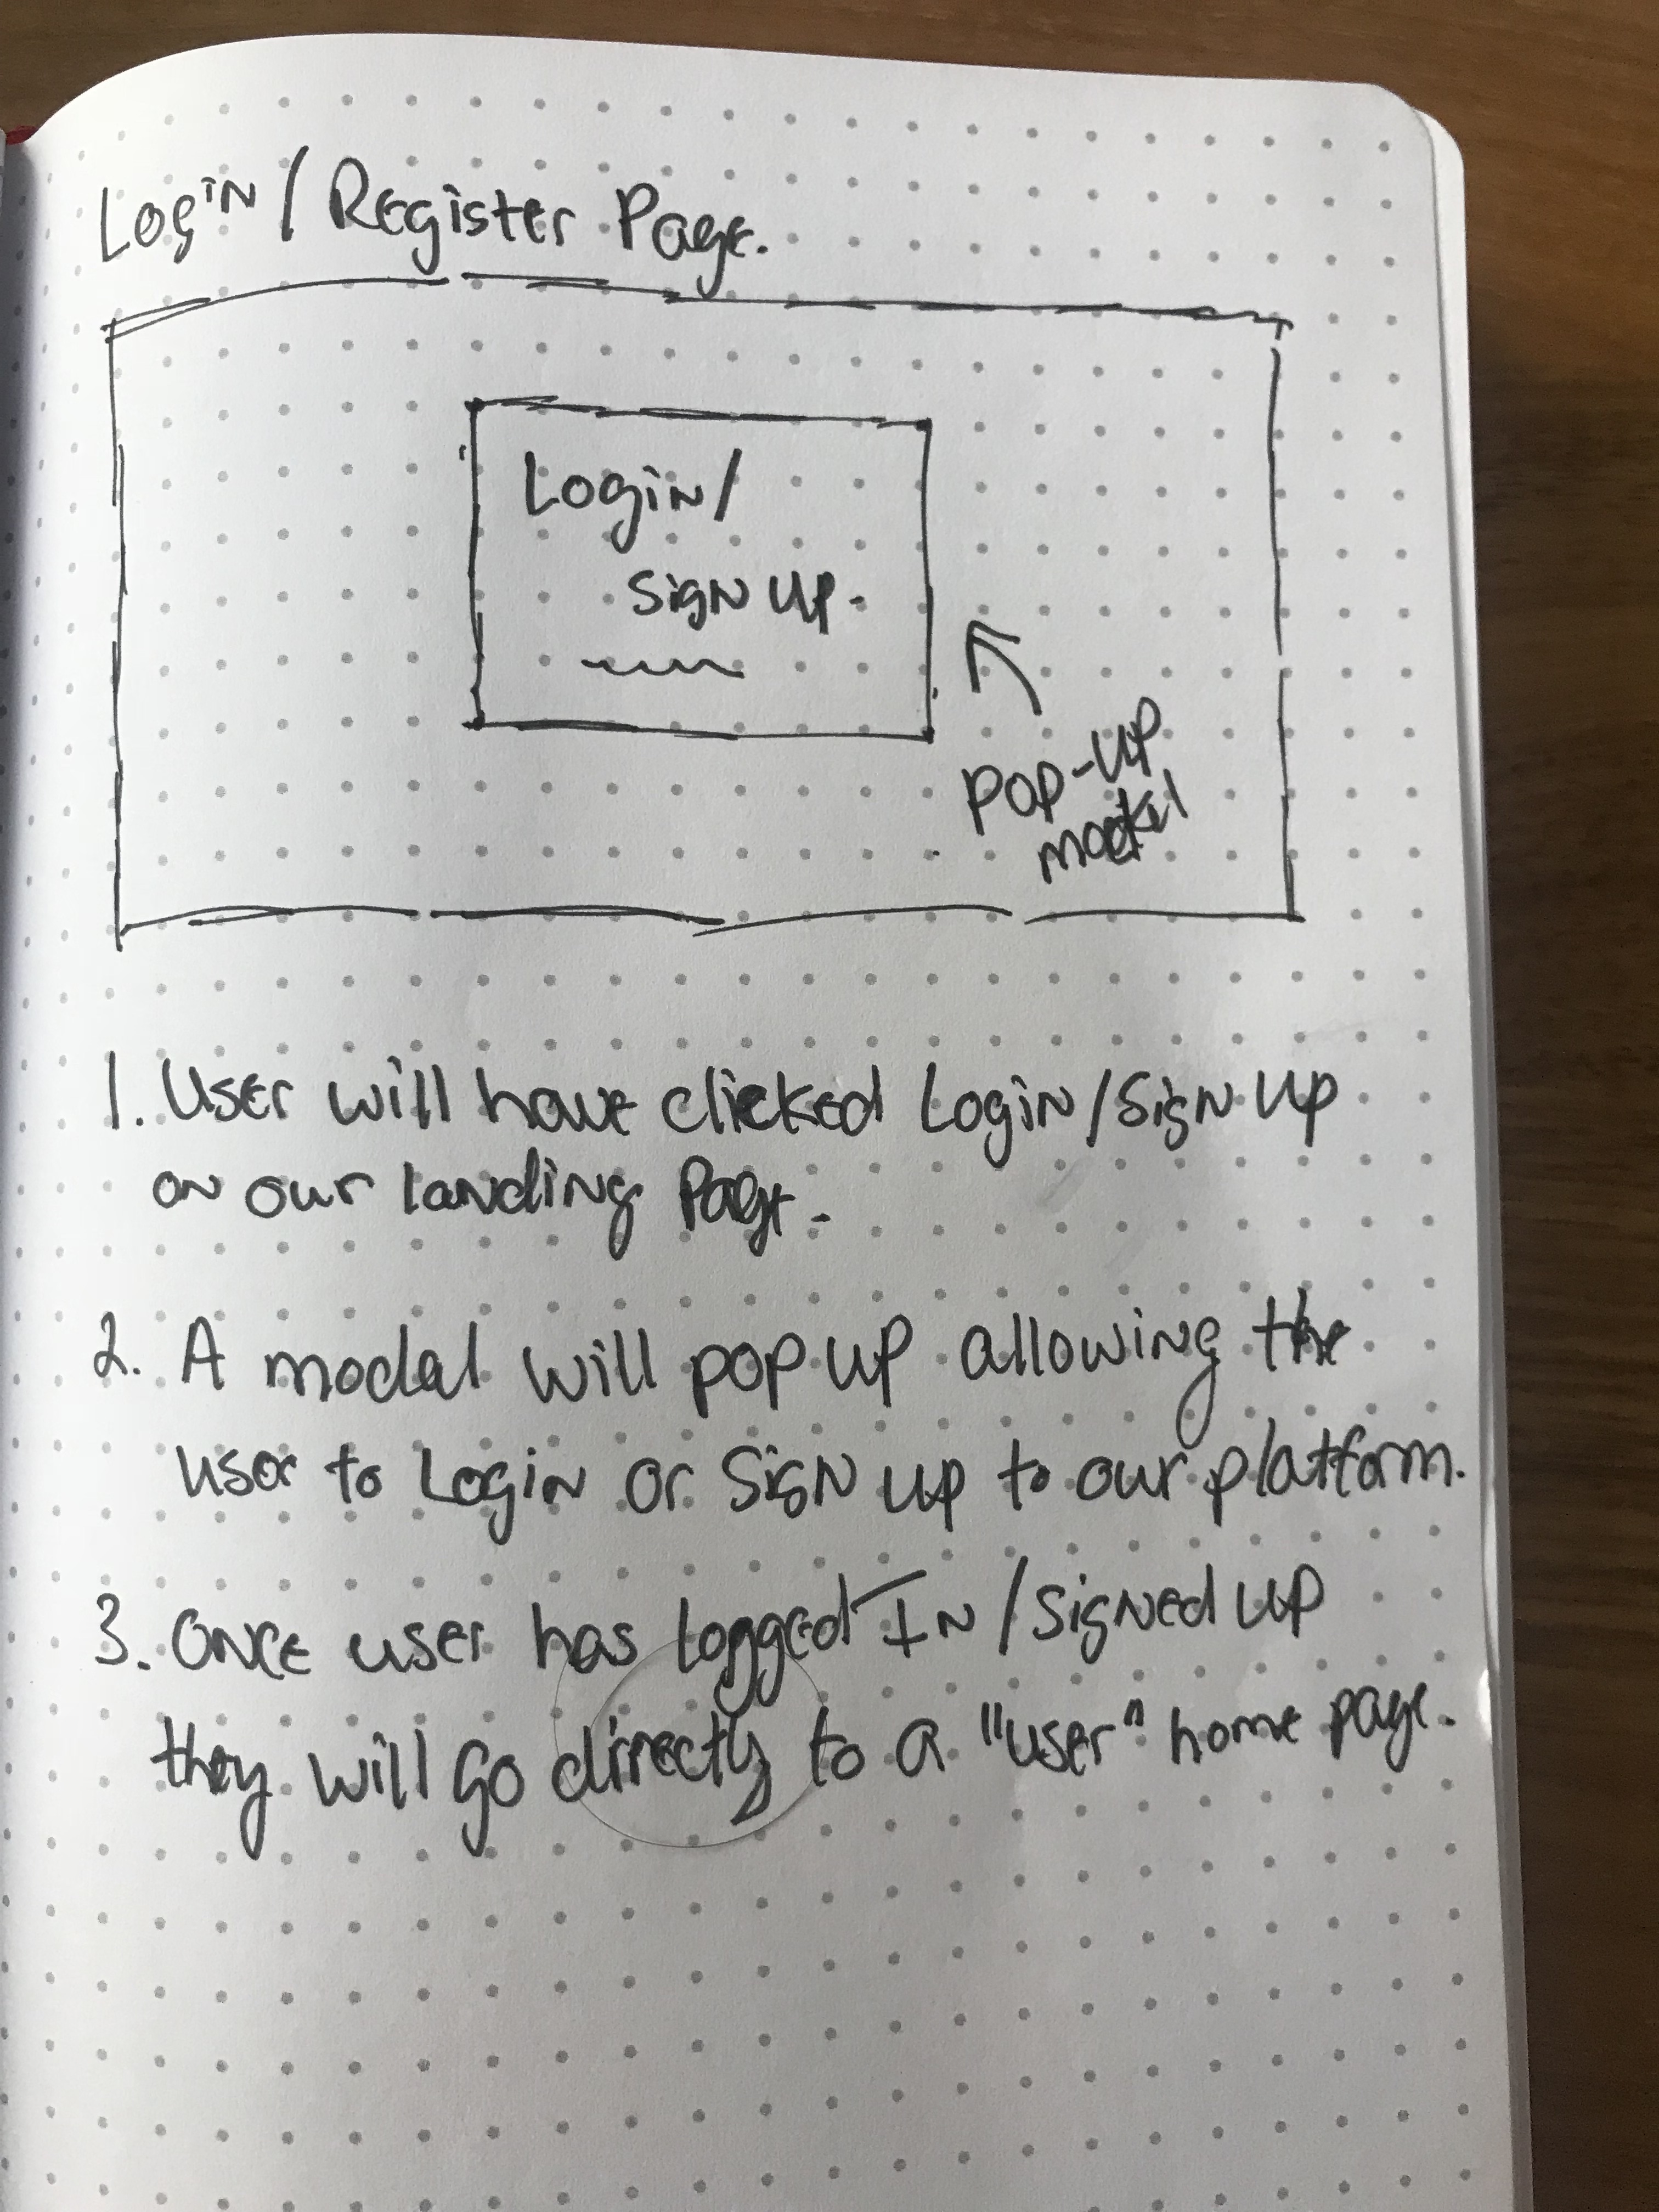 Login / Register Page.
Login /
Sign Up.
POP-UP
modal
1. User will have clicked Login / Sign Up
on our landing Page.
2. A modal will pop up allowing the
user to Login or Sign up to our platform.
3. Once user has logged In / Signed up
they will go directly to a "user" home page.